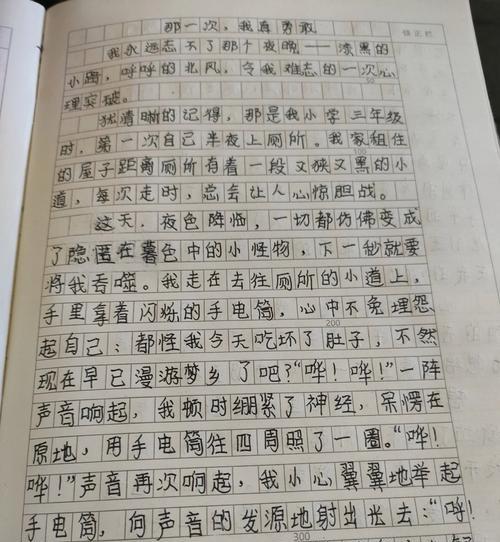 那一次，我真勇敢
错正栏
我永远忘不了那个夜晚——漆黑的
小路，呼呼的北风，令我难忘的一次心
理突破。
犹清晰的记得，那是我小学三年级
时，第一次自己半夜上厕所。我家租住
100
的屋子距离厕所有着一段又狭又黑的小
道，每次走时，总会让人心惊胆战。
这天，夜色降临，一切都仿佛变成
了隐匿在暮色中的小怪物，下一秒就要
将我吞噬。我走在去往厕所的小道上，
手里拿着闪烁的手电筒，心中不免埋怨
200
起自己：都怪我今天吃坏了肚子，不然
现在早已漫游梦乡了吧？“哗！哗！”一阵
声音响起，我顿时绷紧了神经，呆愣在
原地，用手电筒往四周照了一圈。“哗！
哗！”声音再次响起，我小心翼翼地举起
手电筒，向声音的发源地射出光去：“呼！
300